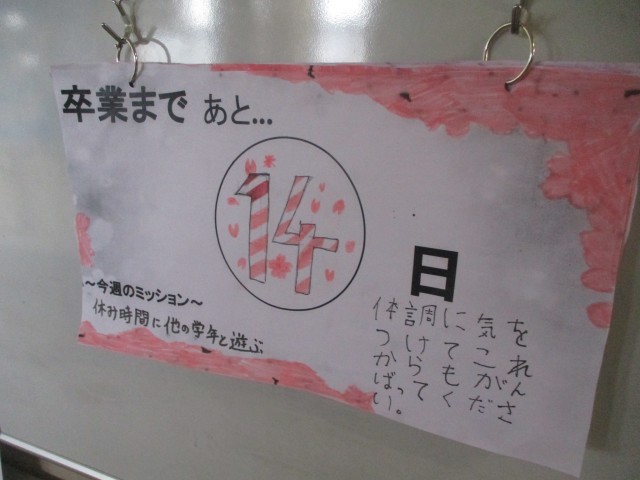 卒業まで あと...
14
日
~今週のミッション~
休み時間に他の学年と遊ぶ
体調に気を
つけてこれ
からもがん
ばってくださ
い。